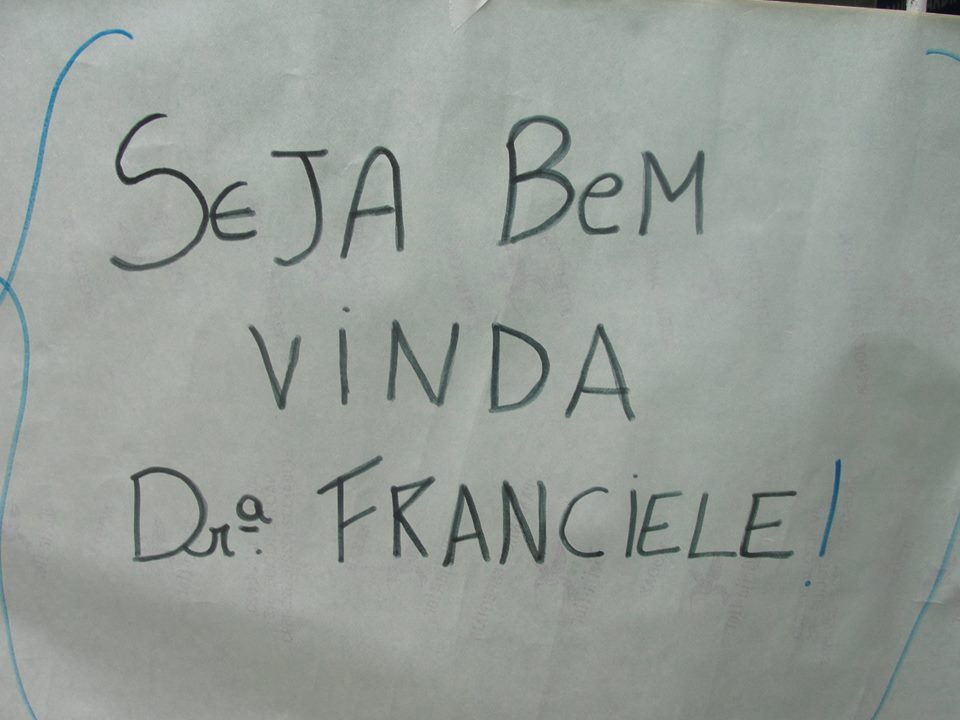 SEJA BeM
ViNDA
Drª. FRANCiELE!